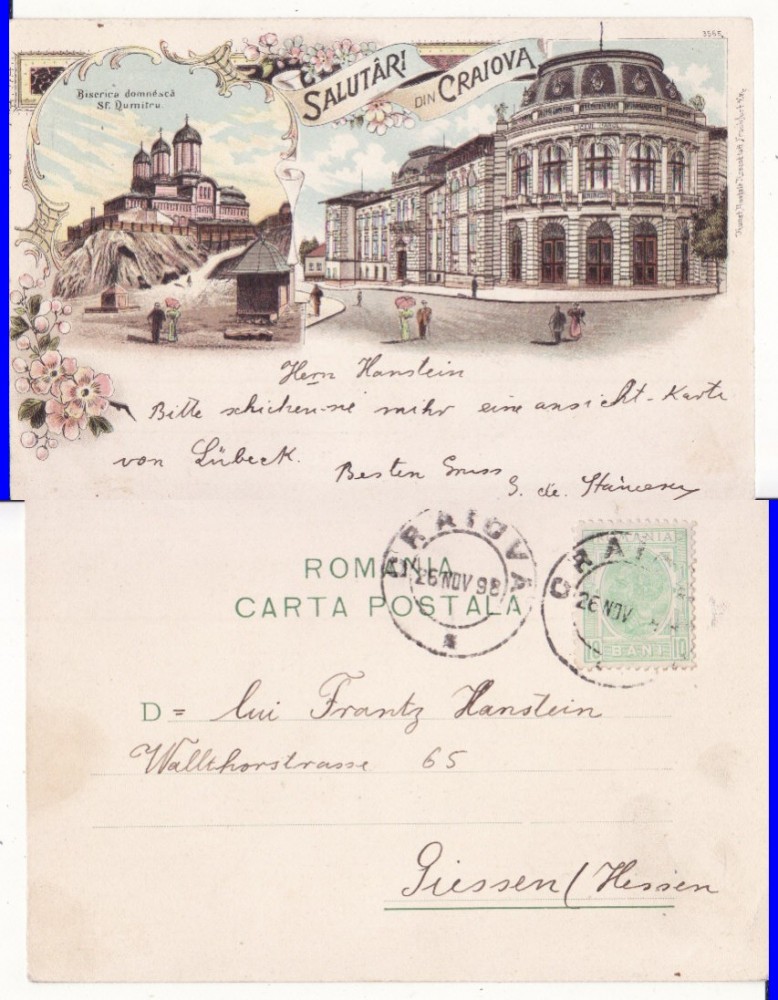 3566
Biserica domnéscă
Sf. Dumitru.
SALUTĂRI
DIN CRAIOVA
Herrn Hanstein
Bitte schicken-sie mihr eine ansicht-Karte
von Lübeck.
Besten Gruss
S. de. Stăncescu
ROMANIA
CARTA POSTALA
CRAIOVA
26 NOV 98
CRAIOVA
26 NOV
ROMANIA
10 BANI 10
D = lui Frantz Hanstein
Wallthorstrasse 65
Giessen (Hessen